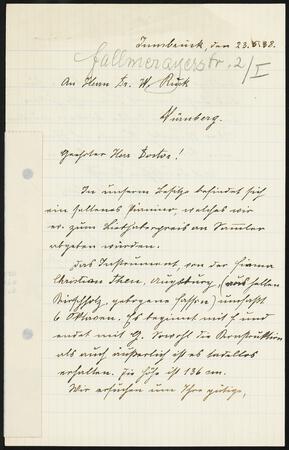 Innsbruck, den 23.5.38.
Fallmerayerstr. 2/I
An Herrn Dr. W. Rück
Nürnberg.
Geehrter Herr Doktor!
In unserm Besitze befindet sich
ein seltenes Pianino, welches wir
ev. zum Liebhaberpreis an Samler
abgeben würden.
Das Instrument, von der Firma
Christian Then, Augsburg, (aus hellen
Kirschholz, gebogene Form) umfaßt
6 Oktaven. Es beginnt mit F und
endet mit G. Sowohl die Konstruktion
als auch äußerlich ist es tadellos
erhalten. Die Höhe ist 136 cm.
Wir ersuchen um Ihre gütige,